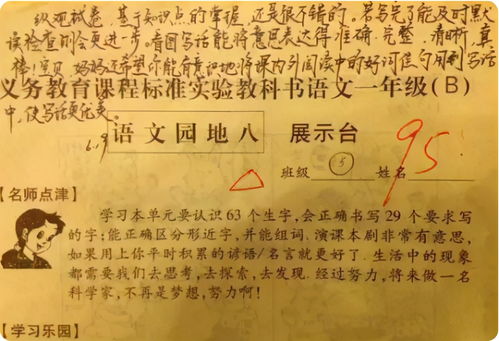 纵观试卷,基于知识点的掌握,还是很不错的。若写完了能及时默
读检查则会更进一步。看图写话能将意思表达得准确、完整、清晰,真
棒!宝贝,妈妈还希望你能有意识地将课内外阅读中的好词佳句用到写话
义务教育课程标准实验教科书语文一年级(B)
中,使写话更优美。
6.19
语文园地八 展示台
班级 5 姓名
95
【名师点津】
学习本单元要认识63个生字,会正确书写29个要求写
的字;能正确区分形近字,并能组词.演课本剧非常有意思,
如果用上你平时积累的谚语/名言就更好了.生活中的现象
都需要我们去思考,去探索,去发现.经过努力,将来做一名
科学家,不再是梦想,努力啊!
【学习乐园】